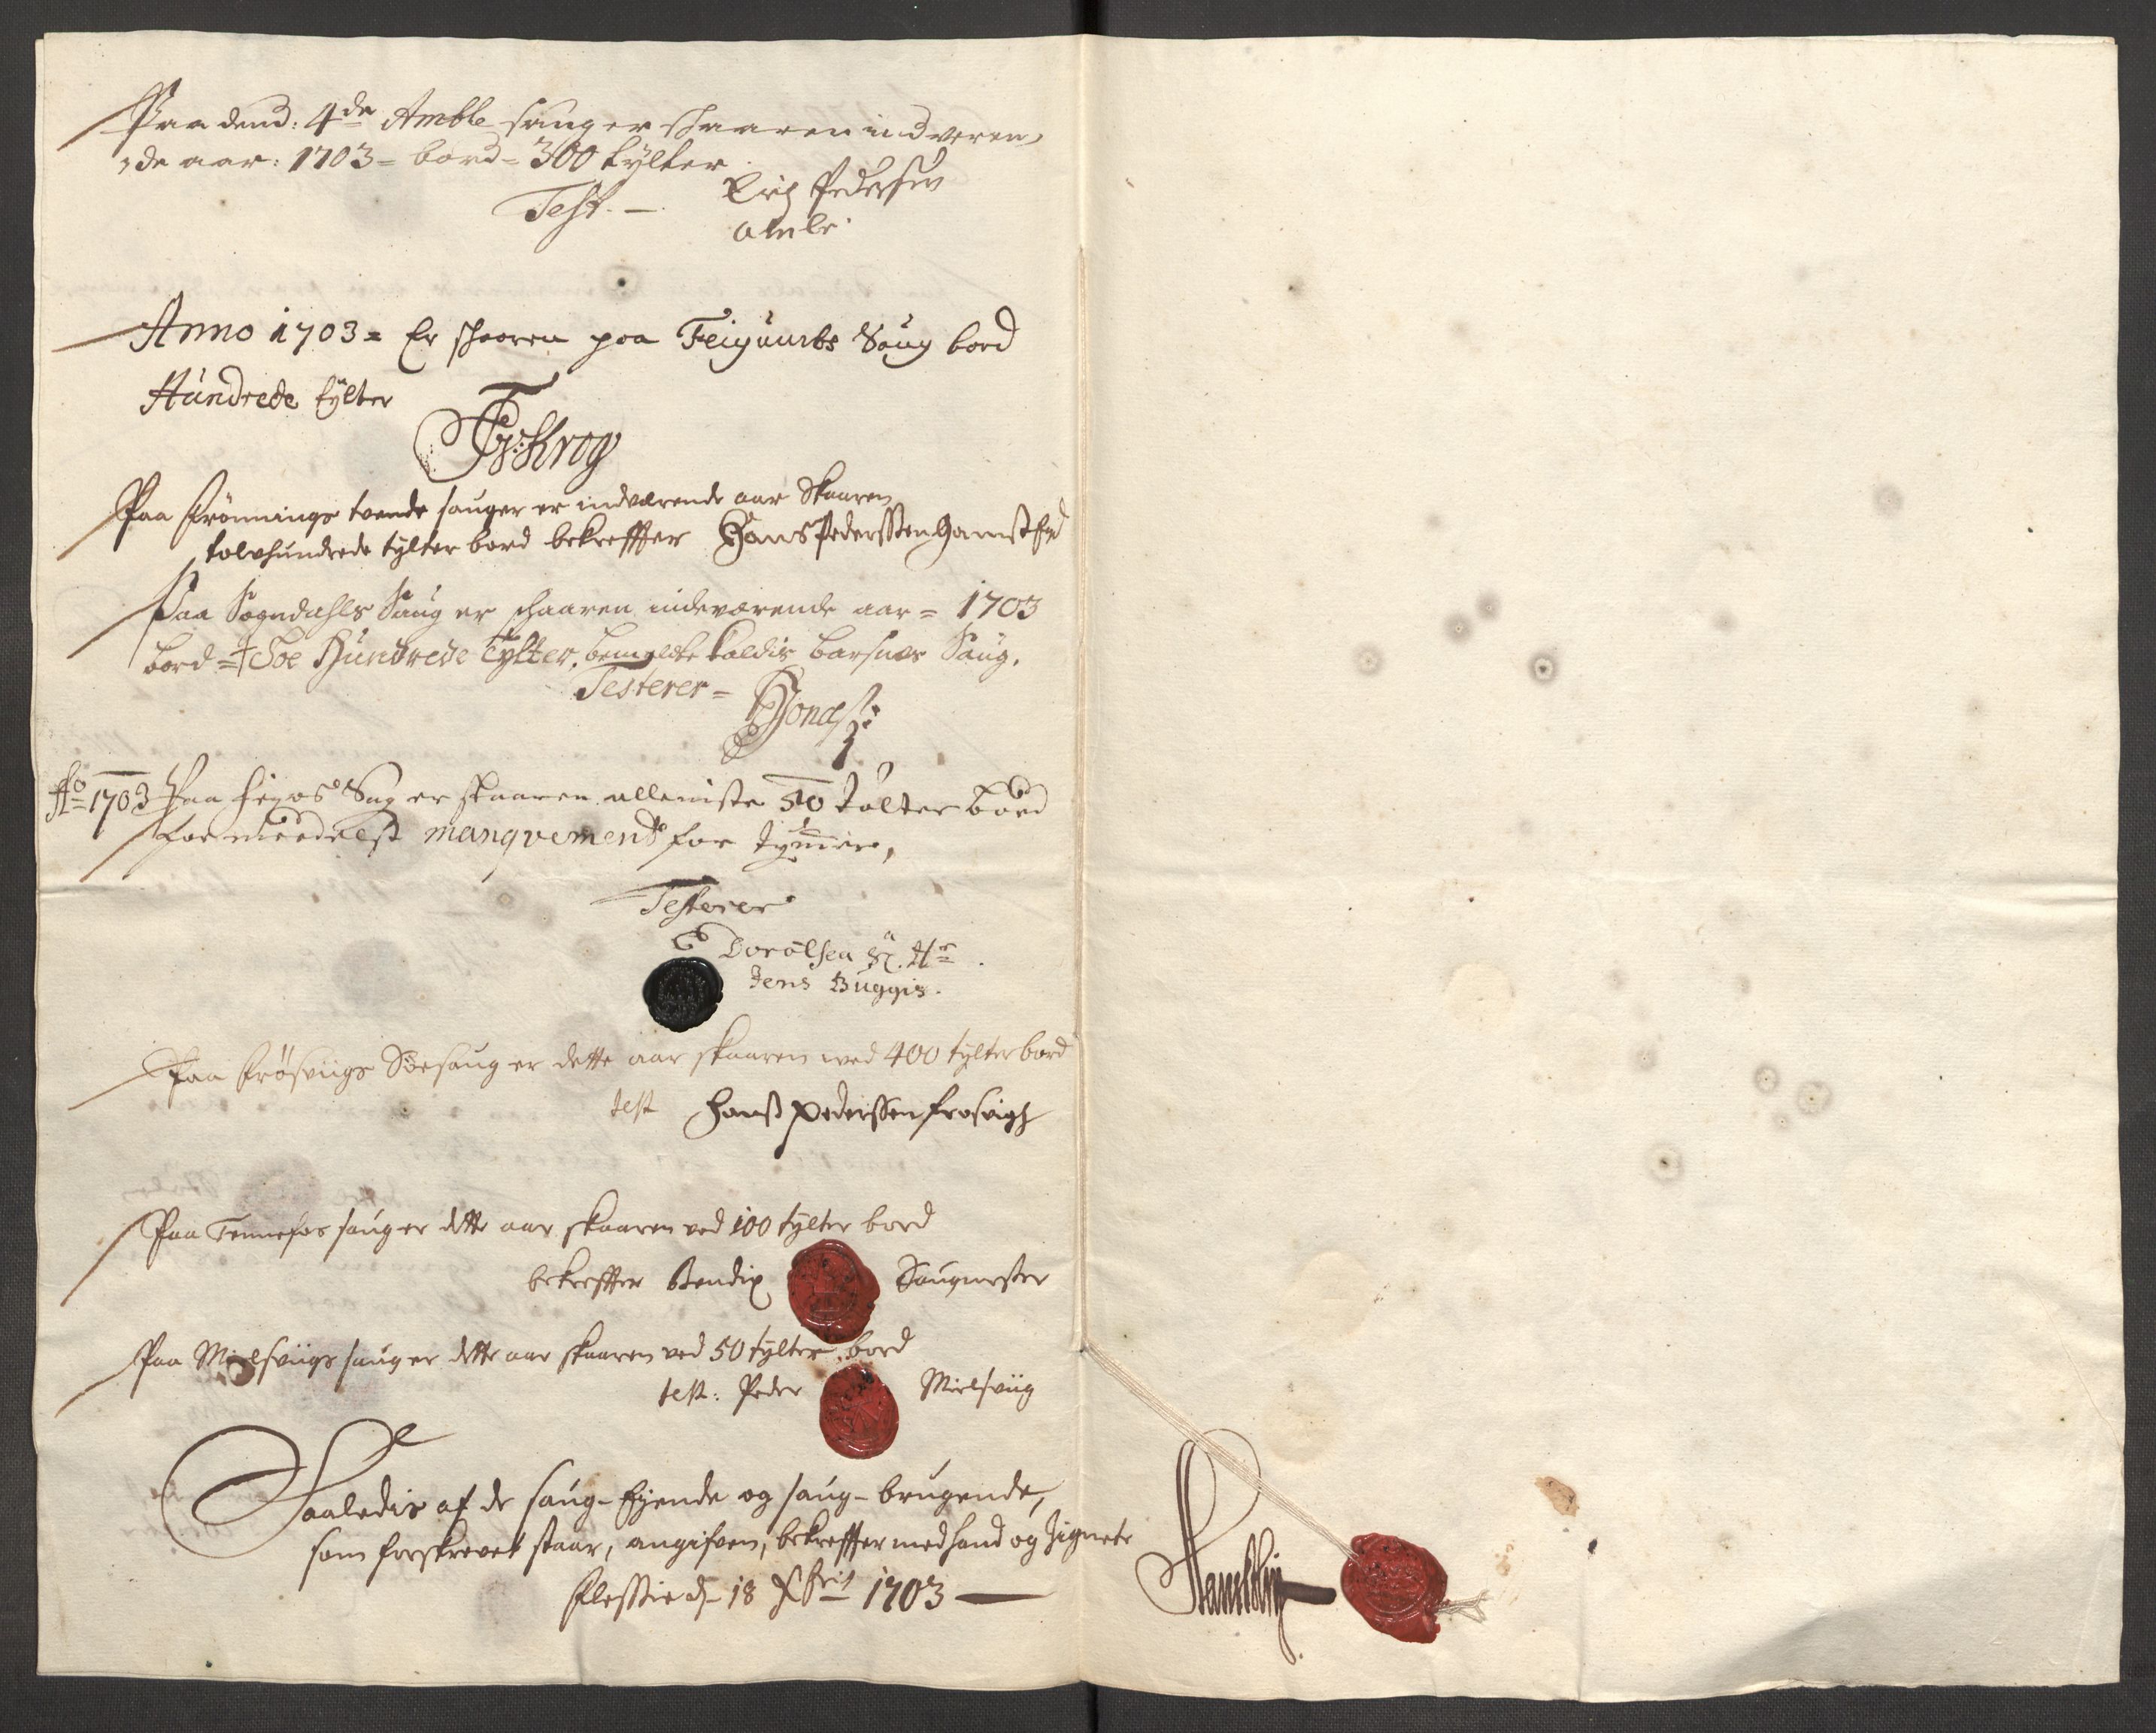 Paa dend: 4de Amble saug er skaaren indveren,
,de aar: 1703 = bord = 300 tylter
Test. — Pedersen
Amble
Anno 1703 = Er skaaren paa Feigumbs Saug bord
Hundrede tylter
Krog
Paa Frønnings tvende sauger er indværende aar Skaaren
tolvhundrede tylter bord bekreffter Hans Pederssøn
Paa Sogndahls Saug er skaaren indeværende aar = 1703
bord = Toe Hundrede Tylter, bemelte kaldis barsnes Saug.
Testerer =
Ao 1703 Paa Saug er skaaren alleniste 50 tølter bord
formeedelst manqvement for tymmer,
Testerer
Jens Buggis.
Paa Frøsviigs Søesaug er dette aar skaaren ved 400 tylter bord
test Hanss Pederssen Frosvigh
Paa Tennefos saug er dette aar skaaren ved 100 tylter bord
bekreffter Bendix Saugmester
Paa Mielsviigs saug er dette aar skaaren ved 50 tylter bord
test: Peder Mielsviig
Saaledis af de saug-Eyende og saug-brugende,
som forskrevet staar, angifven, bekreffter med haand og Zignete
d. 18 Xbris 1703 —